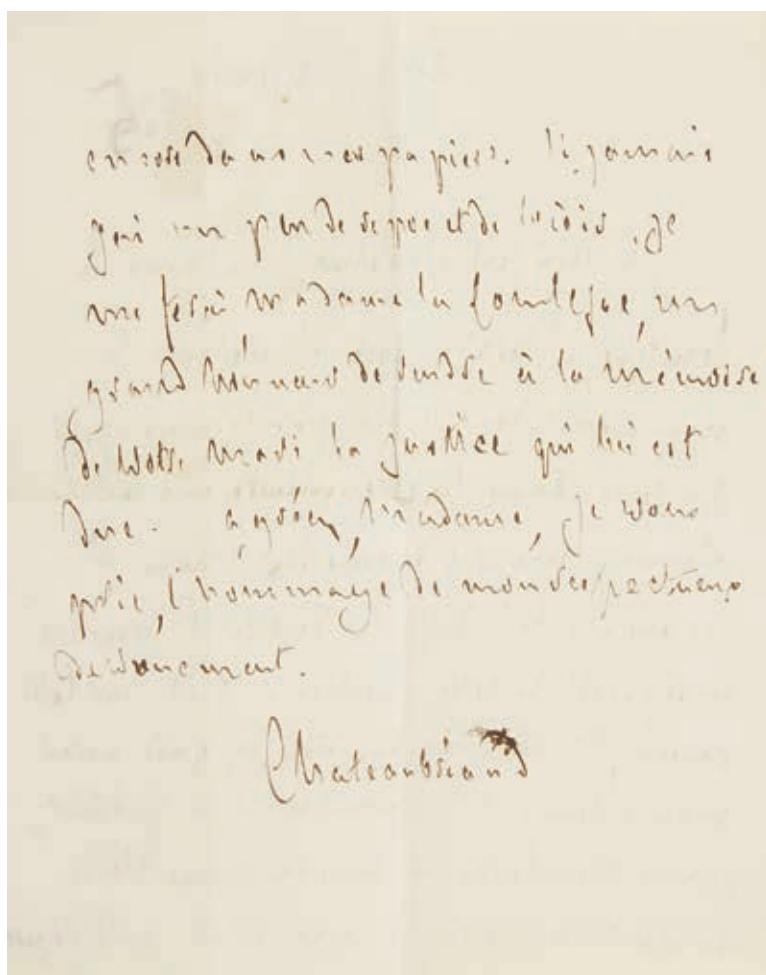 encore dans mes papiers. Si jamais
j'ai un peu de repos et de loisir, je
me ferai Madame la Comtesse, un
grand honneur de rendre à la mémoire
de votre mari la justice qui lui est
due. agréez, Madame, je vous
prie, l'hommage de mon respectueux
dévouement.
Chateaubriand